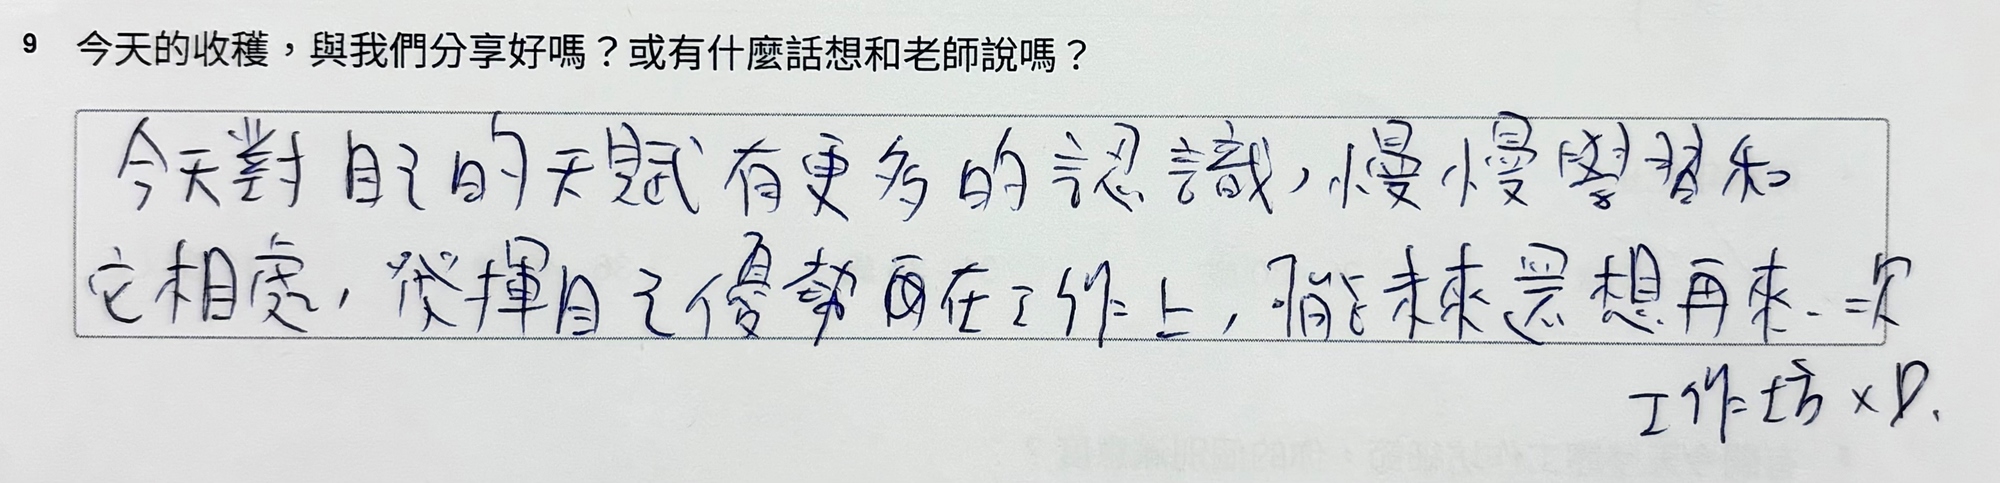 9 今天的收穫，與我們分享好嗎？或有什麼話想和老師說嗎？
今天對自己的天賦有更多的認識，慢慢學習和
它相處，發揮自己優勢再在工作上，可能未來還想再來一次
工作坊 XD.